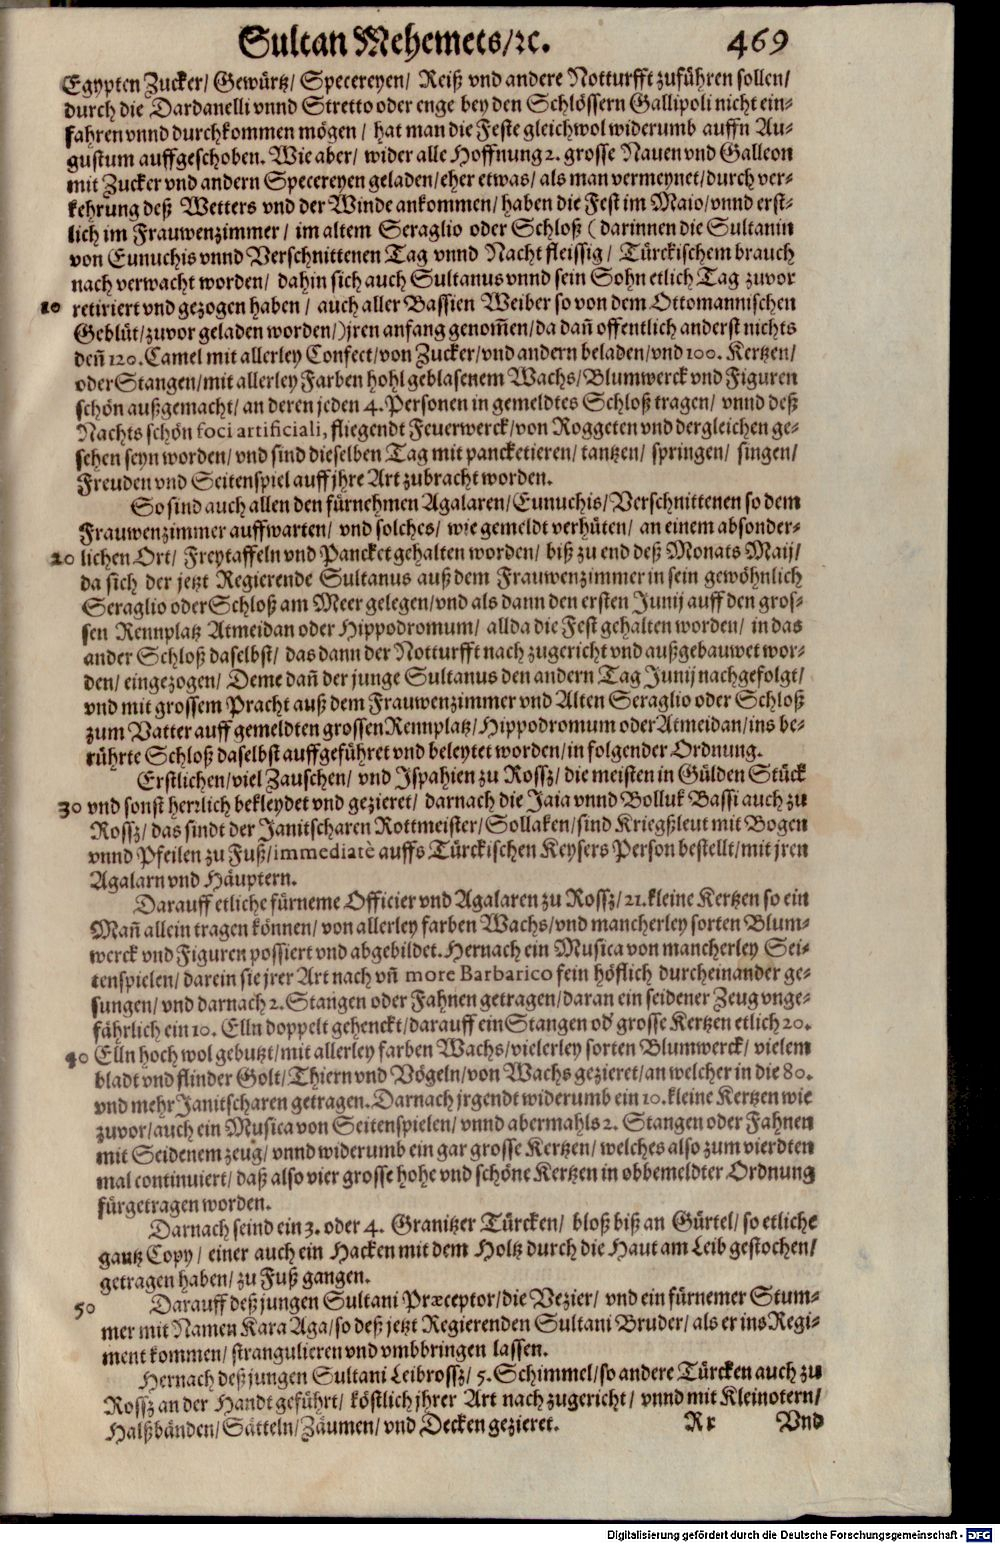 Sultan Mehemets/ꝛc. 469
Egypten Zucker/ Gewürtz/ Specereyen/ Reiß vnd andere Notturfft zuführen sollen/
durch die Dardanelli vnnd Stretto oder enge bey den Schlössern Gallipoli nicht ein-
fahren vnnd durchkommen mögen/ hat man die Feste gleichwol widerumb auffn Au-
gustum auffgeschoben. Wie aber/ wider alle Hoffnung 2. grosse Nauen vnd Galleon
mit Zucker vnd andern Specereyen geladen/ eher etwas/ als man vermeynet/ durch ver-
kehrung deß Wetters vnd der Winde ankommen/ haben die Fest im Maio/ vnnd erst-
lich im Frauwenzimmer/ im altem Seraglio oder Schloß (darinnen die Sultanin
von Eunuchis vnnd Verschnittenen Tag vnnd Nacht fleissig/ Türckischem brauch
nach verwacht worden/ dahin sich auch Sultanus vnnd sein Sohn etlich Tag zuvor
10 retiriert vnd gezogen haben/ auch aller Bassien Weiber so von dem Ottomannischen
Geblüt/ zuvor geladen worden/) jren anfang genom̃en/ da dañ offentlich anderst nichts
deñ 120. Camel mit allerley Confect/ von Zucker/ vnd andern beladen/ vnd 100. Kertzen/
oder Stangen/ mit allerley Farben hohl geblasenem Wachs/ Blumwerck vnd Figuren
schön außgemacht/ an deren jeden 4. Personen in gemeldtes Schloß tragen/ vnnd deß
Nachts schön foci artificiali, fliegendt Feuerwerck/ von Roggeten vnd dergleichen ge-
sehen seyn worden/ vnd sind dieselben Tag mit pancketieren/ tantzen/ springen/ singen/
Freuden vnd Seitenspiel auff jhre Art zubracht worden.
So sind auch allen den fürnehmen Agalaren/ Eunuchis/ Verschnittenen so dem
Frauwenzimmer auffwarten/ vnd solches/ wie gemeldt verhüten/ an einem absonder-
20 lichen Ort/ Freytaffeln vnd Pancket gehalten worden/ biß zu end deß Monats Maij/
da sich der jetzt Regierende Sultanus auß dem Frauwenzimmer in sein gewöhnlich
Seraglio oder Schloß am Meer gelegen/ vnd als dann den ersten Junij auff den gros-
sen Rennplatz Atmeidan oder Hippodromum/ allda die Fest gehalten worden/ in das
ander Schloß daselbst/ das dann der Notturfft nach zugericht vnd außgebauwet wor-
den/ eingezogen/ Deme dañ der junge Sultanus den andern Tag Junij nachgefolgt/
vnd mit grossem Pracht auß dem Frauwenzimmer vnd Alten Seraglio oder Schloß
zum Vatter auff gemeldten grossen Rennplatz/ Hippodromum oder Atmeidan/ ins be-
rührte Schloß daselbst auffgeführet vnd beleytet worden/ in folgender Ordnung.
Erstlichen/ viel Zauschen/ vnd Jspahien zu Rossz/ die meisten in Gülden Stück
30 vnd sonst herrlich bekleydet vnd gezieret/ darnach die Jaia vnnd Bolluk Bassi auch zu
Rossz/ das sindt der Janitscharen Rottmeister/ Sollaken/ sind Kriegßleut mit Bogen
vnnd Pfeilen zu Fuß/ immediatè auffs Türckischen Keysers Person bestellt/ mit jren
Agalarn vnd Häuptern.
Darauff etliche fürneme Officier vnd Agalaren zu Rossz/ 21. kleine Kertzen so ein
Mañ allein tragen können/ von allerley farben Wachs/ vnd mancherley sorten Blum-
werck vnd Figuren possiert vnd abgebildet. Hernach ein Musica von mancherley Sei-
tenspielen/ darein sie jrer Art nach vñ more Barbarico fein höflich durcheinander ge-
sungen/ vnd darnach 2. Stangen oder Fahnen getragen/ daran ein seidener Zeug vnge-
fährlich ein 10. Elln doppelt gehenckt/ darauff ein Stangen od' grosse Kertzen etlich 20.
40 Elln hoch wol gebutzt/ mit allerley farben Wachs/ vielerley sorten Blumwerck/ vielem
bladt vnd flinder Golt/ Thiern vnd Vögeln/ von Wachs gezieret/ an welcher in die 80.
vnd mehr Janitscharen getragen. Darnach jrgendt widerumb ein 10. kleine Kertzen wie
zuvor/ auch ein Musica von Seitenspielen/ vnnd abermahls 2. Stangen oder Fahnen
mit Seidenem zeug/ vnnd widerumb ein gar grosse Kertzen/ welches also zum vierdten
mal continuiert/ daß also vier grosse hohe vnd schöne Kertzen in obbemeldter Ordnung
fürgetragen worden.
Darnach seind ein 3. oder 4. Granitzer Türcken/ bloß biß an Gürtel/ so etliche
gantz Copy/ einer auch ein Hacken mit dem Holtz durch die Haut am Leib gestochen/
getragen haben/ zu Fuß gangen.
50 Darauff deß jungen Sultani Præceptor/ die Vezier/ vnd ein fürnemer Stum-
mer mit Namen Kara Aga/ so deß jetzt Regierenden Sultani Bruder/ als er ins Regi-
ment kommen/ strangulieren vnd vmbbringen lassen.
Hernach deß jungen Sultani Leibrossz/ 5. Schimmel/ so andere Türcken auch zu
Rossz an der Handt geführt/ köstlich jhrer Art nach zugericht/ vnnd mit Kleinotern/
Halßbänden/ Sätteln/ Zäumen/ vnd Decken gezieret. Rx Vnd
Digitalisierung gefördert durch die Deutsche Forschungsgemeinschaft - DFG